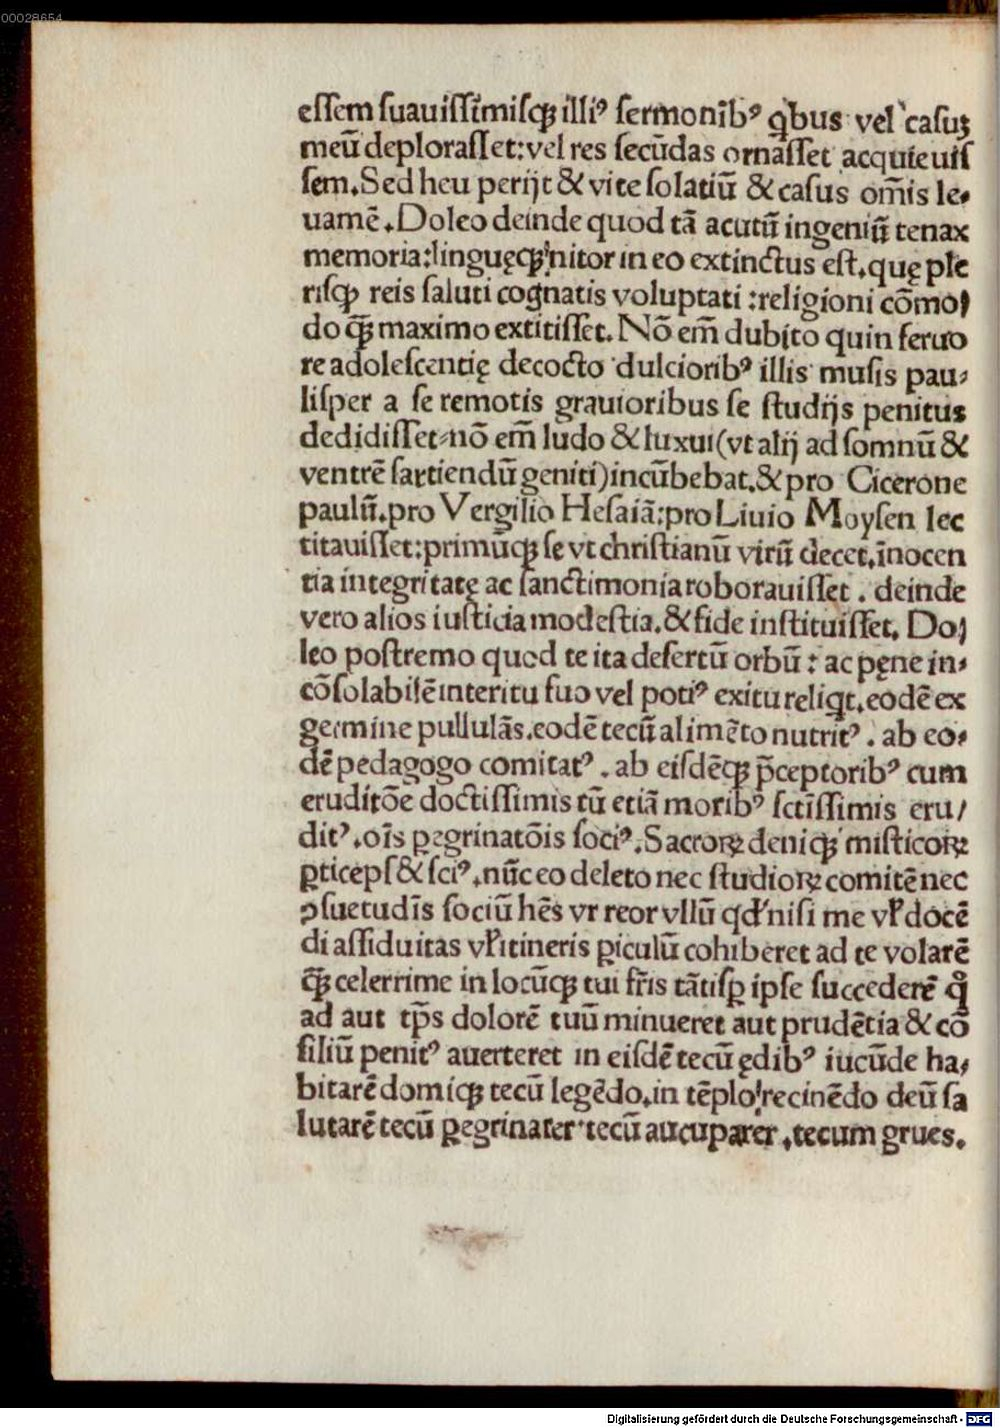 00028654
eſſem ſuauiſſimiſqꝫ illiꝰ ſermonibꝰ ꝗbus vel caſuꝫ
meū deploraſſet: vel res ſecūdas ornaſſet acquieuiſ
ſem. Sed heu perijt & vite ſolatiū & caſus om̄is le-
uamē. Doleo deinde quod tā acutū ingeniū tenax
memoria: linguęqꝫ nitor in eo extinctus eſt, quę ple
riſqꝫ reis ſaluti cognatis voluptati : religioni cōmo
do qꝫ̄ maximo extitiſſet. Nō em̄ dubito quin feruo
re adoleſcentię decocto dulcioribꝰ illis muſis pau-
liſper a ſe remotis grauioribus ſe ſtudijs penitus
dediſſet nō em̄ ludo & luxui (vt alij ad ſomnū &
ventrē ſartiendū geniti) incūbebat. & pro Cicerone
paulū. pro Vergilio Heſaiā: pro Liuio Moyſen lec
titauiſſet: primūqꝫ ſe vt chriſtianū virū decet, īnocen
tia integritatę ac ſanctimonia roborauiſſet . deinde
vero alios iuſticia modeſtia. & fide inſtituiſſet. Do
leo poſtremo quod te ita deſertū orbū : ac pęne in-
cōſolabilē interitu ſuo vel potiꝰ exitu reliꝗt. eodē ex
germine pullulās. eodē tecū alimēto nutritꝰ . ab eo-
dē pedagogo comitatꝰ . ab eiſdēqꝫ p̄ceptoribꝰ cum
eruditōe doctiſſimis tū etiā moribꝰ ſctīſſimis eru/
ditꝰ. oīs ꝑegrinatōis ſociꝰ. Sacroꝝ deniqꝫ miſticoꝝ
ꝑticeps & ſciꝰ, nūc eo deleto nec ſtudioꝝ comitē nec
ꝯſuetudīs ſociū hēs vt reor vllū qd' niſi me vł docē
di aſſiduitas vł itineris ꝑiculū cohiberet ad te volarē
qꝫ̄ celerrime in locūqꝫ tui fr̄is tātiſꝑ ipſe ſuccederē
ad aut tp̄s dolorē tuū minueret aut prudētia & cō
ſiliū penitꝰ auerteret in eiſdē tecū ędibꝰ iucūde ha-
bitarē domiqꝫ tecū legēdo, in tēplo recinēdo deū ſa
lutarē tecū ꝑegrinarer tecū aucuparer, tecum grues.
Digitalisierung gefördert durch die Deutsche Forschungsgemeinschaft - DFG